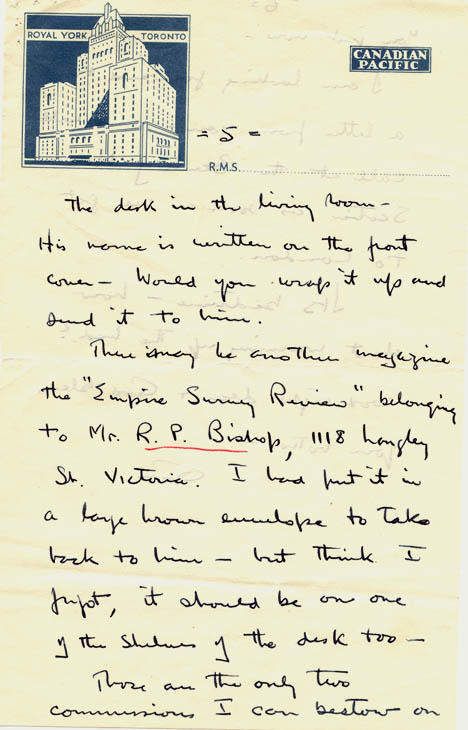 ROYAL YORK TORONTO
CANADIAN
PACIFIC
= 5 =
R.M.S.
The desk in the living room -
His name is written on the front
cover - Would you wrap it up and
send it to him.
There may be another magazine
the "Empire Survey Review" belonging
to Mr. R. P. Bishop, 1118 Langley
St. Victoria. I had put it in
a large brown envelope to take
back to him - but think I
forgot, it should be on one
of the shelves of the desk too -
Those are the only two
commissions I can bestow on